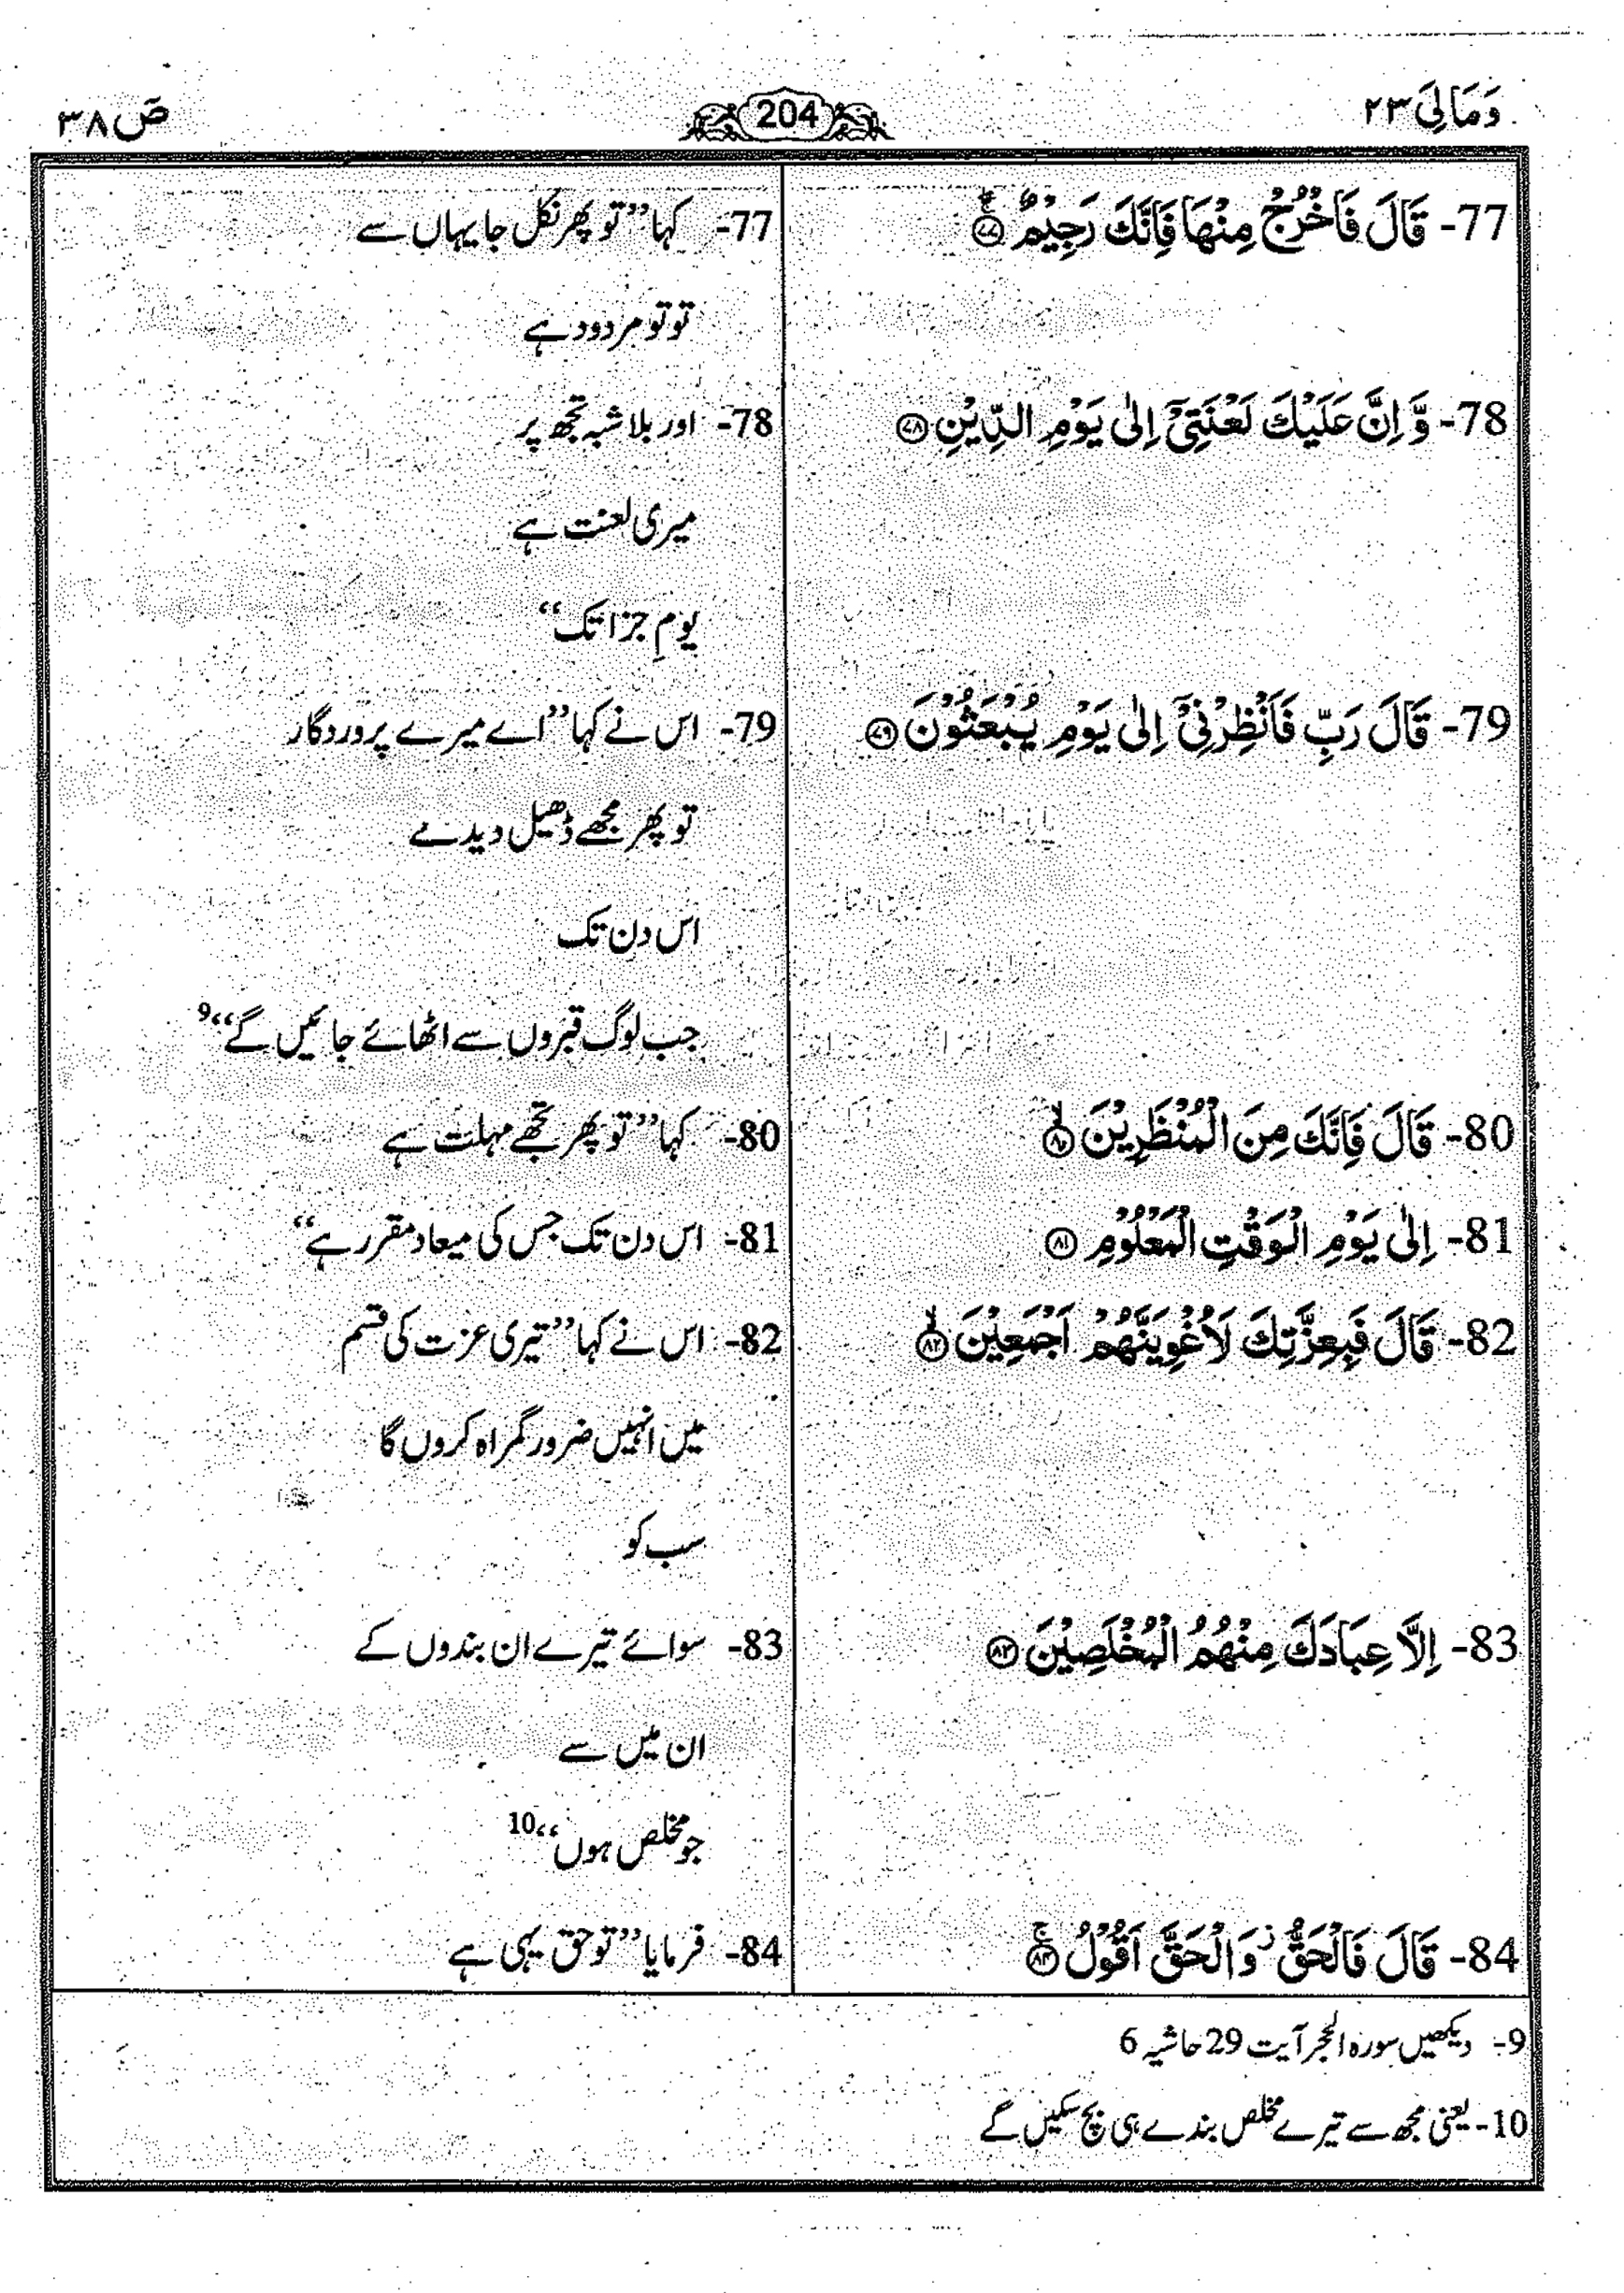 وَمَالِيَ ٢٣
204
صٓ ٣٨
77- قَالَ فَاخْرُجْ مِنْهَا فَاِنَّكَ رَجِيْمٌ ۚۖ ﴿٧٧﴾
77- کہا ’’تو پھر نکل جا یہاں سے
تو تو مردود ہے
78- وَّ اِنَّ عَلَيْكَ لَعْنَتِيْۤ اِلٰى يَوْمِ الدِّيْنِ ﴿٧٨﴾
78- اور بلاشبہ تجھ پر
میری لعنت ہے
یومِ جزا تک‘‘
79- قَالَ رَبِّ فَاَنْظِرْنِيْۤ اِلٰى يَوْمِ يُبْعَثُوْنَ ﴿٧٩﴾
79- اس نے کہا ’’اے میرے پروردگار
تو پھر مجھے ڈھیل دیدے
اس دن تک
جب لوگ قبروں سے اٹھائے جائیں گے‘‘9
80- قَالَ فَاِنَّكَ مِنَ الْمُنْظَرِيْنَ ۙ ﴿٨٠﴾
80- کہا ’’تو پھر تجھے مہلت ہے
81- اِلٰى يَوْمِ الْوَقْتِ الْمَعْلُوْمِ ﴿٨١﴾
81- اس دن تک جس کی میعاد مقرر ہے‘‘
82- قَالَ فَبِعِزَّتِكَ لَاُغْوِيَنَّهُمْ اَجْمَعِيْنَ ۙ ﴿٨٢﴾
82- اس نے کہا ’’تیری عزت کی قسم
میں انہیں ضرور گمراہ کروں گا
سب کو
83- اِلَّا عِبَادَكَ مِنْهُمُ الْمُخْلَصِيْنَ ﴿٨٣﴾
83- سوائے تیرے ان بندوں کے
ان میں سے
جو مخلص ہوں‘‘10
84- قَالَ فَالْحَقُّ ؗ وَ الْحَقَّ اَقُوْلُ ۚ ﴿٨٤﴾
84- فرمایا ’’تو حق یہی ہے
9- دیکھیں سورہ الحجر آیت 29 حاشیہ 6
10- یعنی مجھ سے تیرے مخلص بندے ہی بچ سکیں گے